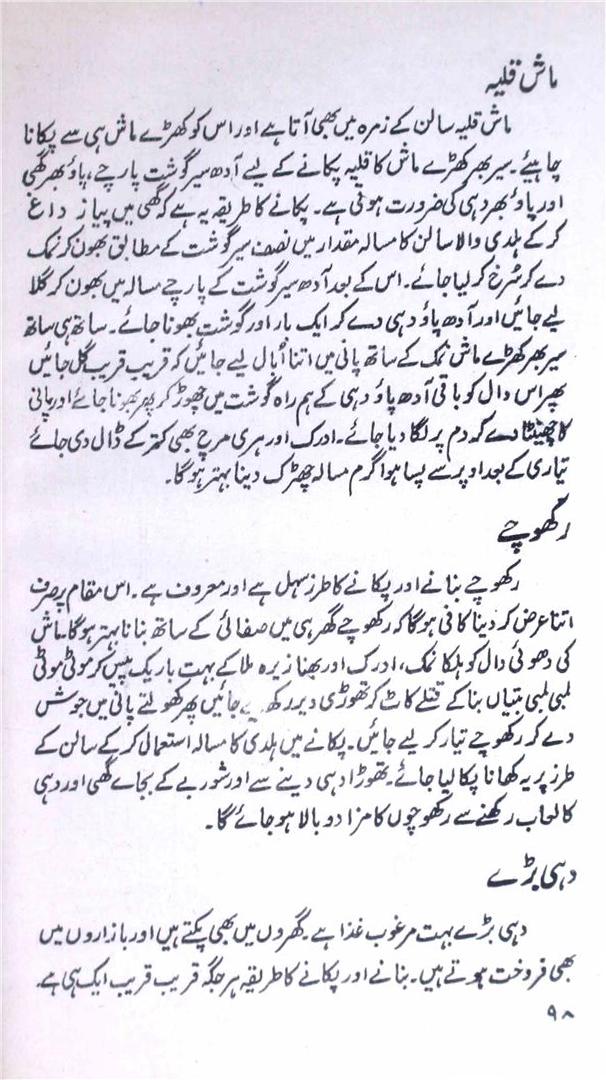 ماش قلیہ
ماش قلیہ سالن کے زمرہ میں بھی آتا ہے اور اس کو کھڑے ماش ہی سے پکانا
چاہیئے۔ سیر بھر کھڑے ماش کا قلیہ پکانے کے لیے آدھ سیر گوشت پارچے، پاؤ بھر گھی
اور پاؤ بھر دہی کی ضرورت ہوتی ہے۔ پکانے کا طریقہ یہ ہے کہ گھی میں پیاز داغ
کر کے ہلدی والا سالن کا مسالہ مقدار میں نصف سیر گوشت کے مطابق بھون کر نمک
دے کر سُرخ کر لیا جائے۔ اس کے بعد آدھ سیر گوشت کے پارچے مسالہ میں بھون کر گلا
لیے جائیں اور آدھ پاؤ دہی دے کر ایک بار اور گوشت بھونا جائے۔ ساتھ ہی ساتھ
سیر بھر کھڑے ماش نمک کے ساتھ پانی میں اتنا اُبال لیے جائیں کہ قریب قریب گل جائیں
پھر اس دال کو باقی آدھ پاؤ دہی کے ہم راہ گوشت میں چھوڑ کر پھر بھونا جائے اور پانی
کا چھینٹا دے کہ دم پر لگا دیا جائے۔ ادرک اور ہری مرچ بھی کتر کے ڈال دی جائے
تیاری کے بعد اوپر سے پسا ہوا گرم مسالہ چھڑک دینا بہتر ہوگا۔
رکھوچے
رکھوچے بنانے اور پکانے کا طرز سہل ہے اور معروف ہے۔ اس مقام پر صرف
اتنا عرض کر دینا کافی ہوگا کہ رکھوچے گھر ہی میں صفائی کے ساتھ بنانا بہتر ہوگا۔ ماش
کی دھوئی دال کو ہلکا نمک، ادرک اور بھنا زیرہ ملا کے بہت باریک پیس کر موٹی موٹی
لمبی لمبی بتیاں بنا کے قتلے کاٹ کر تھوڑی دیر رکھ لیے جائیں پھر کھولتے پانی میں جوش
دے کر رکھوچے تیار کر لیے جائیں۔ پکانے میں ہلدی کا مسالہ استعمال کر کے سالن کے
طرز پر یہ کھانا پکا لیا جائے۔ تھوڑا دہی دینے سے اور شوربے کے بجائے گھی اور دہی
کا لعاب رکھنے سے رکھوچوں کا مزا دو بالا ہو جائے گا۔
دہی بڑے
دہی بڑے بہت مرغوب غذا ہے۔ گھروں میں بھی پکتے ہیں اور بازاروں میں
بھی فروخت ہوتے ہیں۔ بنانے اور پکانے کا طریقہ ہر جگہ قریب قریب ایک ہی ہے۔
۹۸